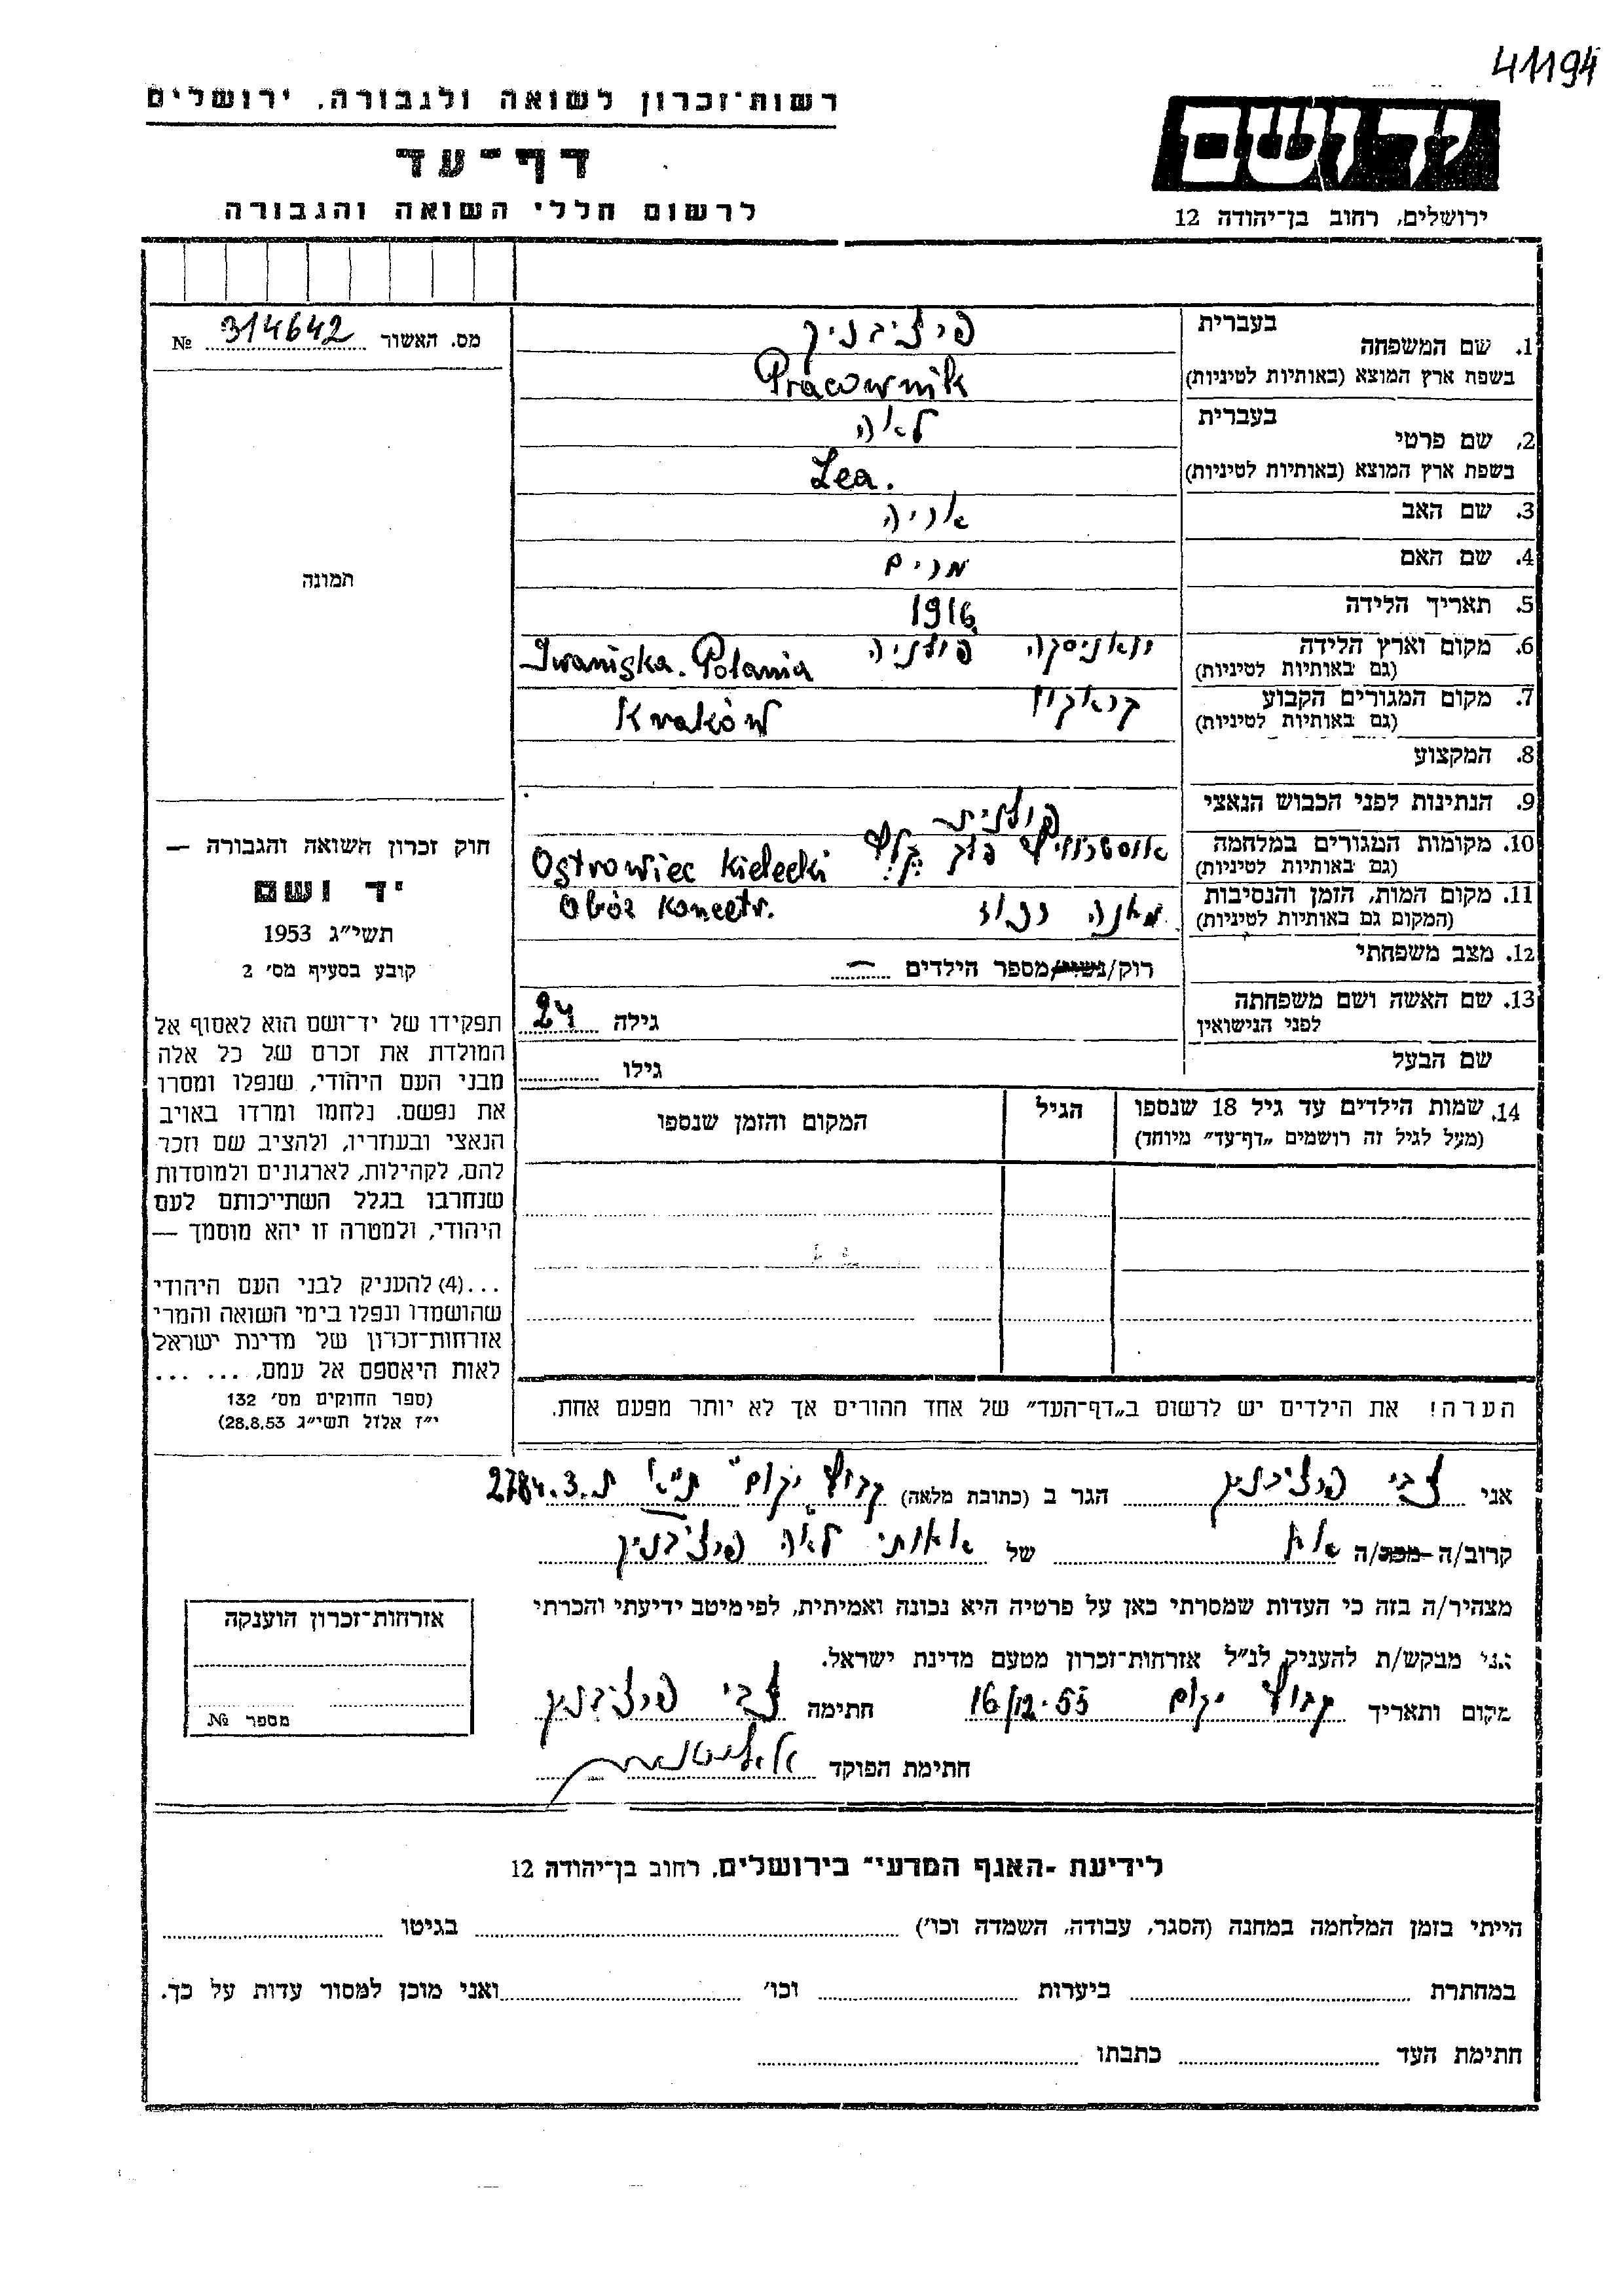 41194
רשות־זכרון לשואה ולגבורה, ירושלים
דף־עד
לרשום חללי השואה והגבורה
יד ושם
ירושלים, רחוב בן־יהודה 12
מס. האשור 314642 №
תמונה
חוק זכרון השואה והגבורה —
יד ושם
תשי״ג 1953
קובע בסעיף מס׳ 2
תפקידו של יד־ושם הוא לאסוף אל
המולדת את זכרם של כל אלה
מבני העם היהודי, שנפלו ומסרו
את נפשם. נלחמו ומרדו באויב
הנאצי ובעוזריו, ולהציב שם וזכר
להם, לקהילות, לארגונים ולמוסדות
שנחרבו בגלל השתייכותם לעם
היהודי, ולמטרה זו יהא מוסמך —
...(4) להעניק לבני העם היהודי
שהושמדו ונפלו בימי השואה והמרי
אזרחות־זכרון של מדינת ישראל
לאות היאספם אל עמם, ... ...
(ספר החוקים מס׳ 132
י״ז אלול תשי״ג 28.8.53)
1. שם המשפחה בעברית פרצובניק
בשפת ארץ המוצא (באותיות לטיניות) Pracownik
2. שם פרטי בעברית לאה
בשפת ארץ המוצא (באותיות לטיניות) Lea.
3. שם האב אריה
4. שם האם מרים
5. תאריך הלידה 1916
6. מקום וארץ הלידה יואניסקה פולניה Iwaniska. Polania
(גם באותיות לטיניות)
7. מקום המגורים הקבוע קראקוו Kraków
(גם באותיות לטיניות)
8. המקצוע
9. הנתינות לפני הכבוש הנאצי פולנית
10. מקומות המגורים במלחמה Ostrowiec Kielecki
(גם באותיות לטיניות)
11. מקום המות, הזמן והנסיבות מאנה רכוז Obóz Koncetr.
(המקום גם באותיות לטיניות)
12. מצב משפחתי רוק/נשוי/מספר הילדים —
13. שם האשה ושם משפחתה גילה 24
לפני הנישואין
שם הבעל גילו
14. שמות הילדים עד גיל 18 שנספו הגיל המקום והזמן שנספו
(מעל לגיל זה רושמים „דף־עד״ מיוחד)
הערה! את הילדים יש לרשום ב„דף־העד״ של אחד ההורים אך לא יותר מפעם אחת.
אני צבי פרצובניק הגר ב (כתובת מלאה) קבוץ יקום ת״א ת.ד. 2784
קרוב/ה מכר/ה אח של אחותי לאה פרצובניק
מצהיר/ה בזה כי העדות שמסרתי כאן על פרטיה היא נכונה ואמיתית, לפי מיטב ידיעתי והכרתי
אני מבקש/ת להעניק לנ״ל אזרחות־זכרון מטעם מדינת ישראל.
מקום ותאריך קבוץ יקום 16/12.55 חתימה צבי פרצובניק
חתימת הפוקד
אזרחות־זכרון הוענקה
מספר №
לידיעת ״האגף המדעי״ בירושלים, רחוב בן־יהודה 12
הייתי בזמן המלחמה במחנה (הסגר, עבודה, השמדה וכו׳) בגיטו
במחתרת ביערות וכו׳ ואני מוכן למסור עדות על כך.
חתימת העד כתבתו